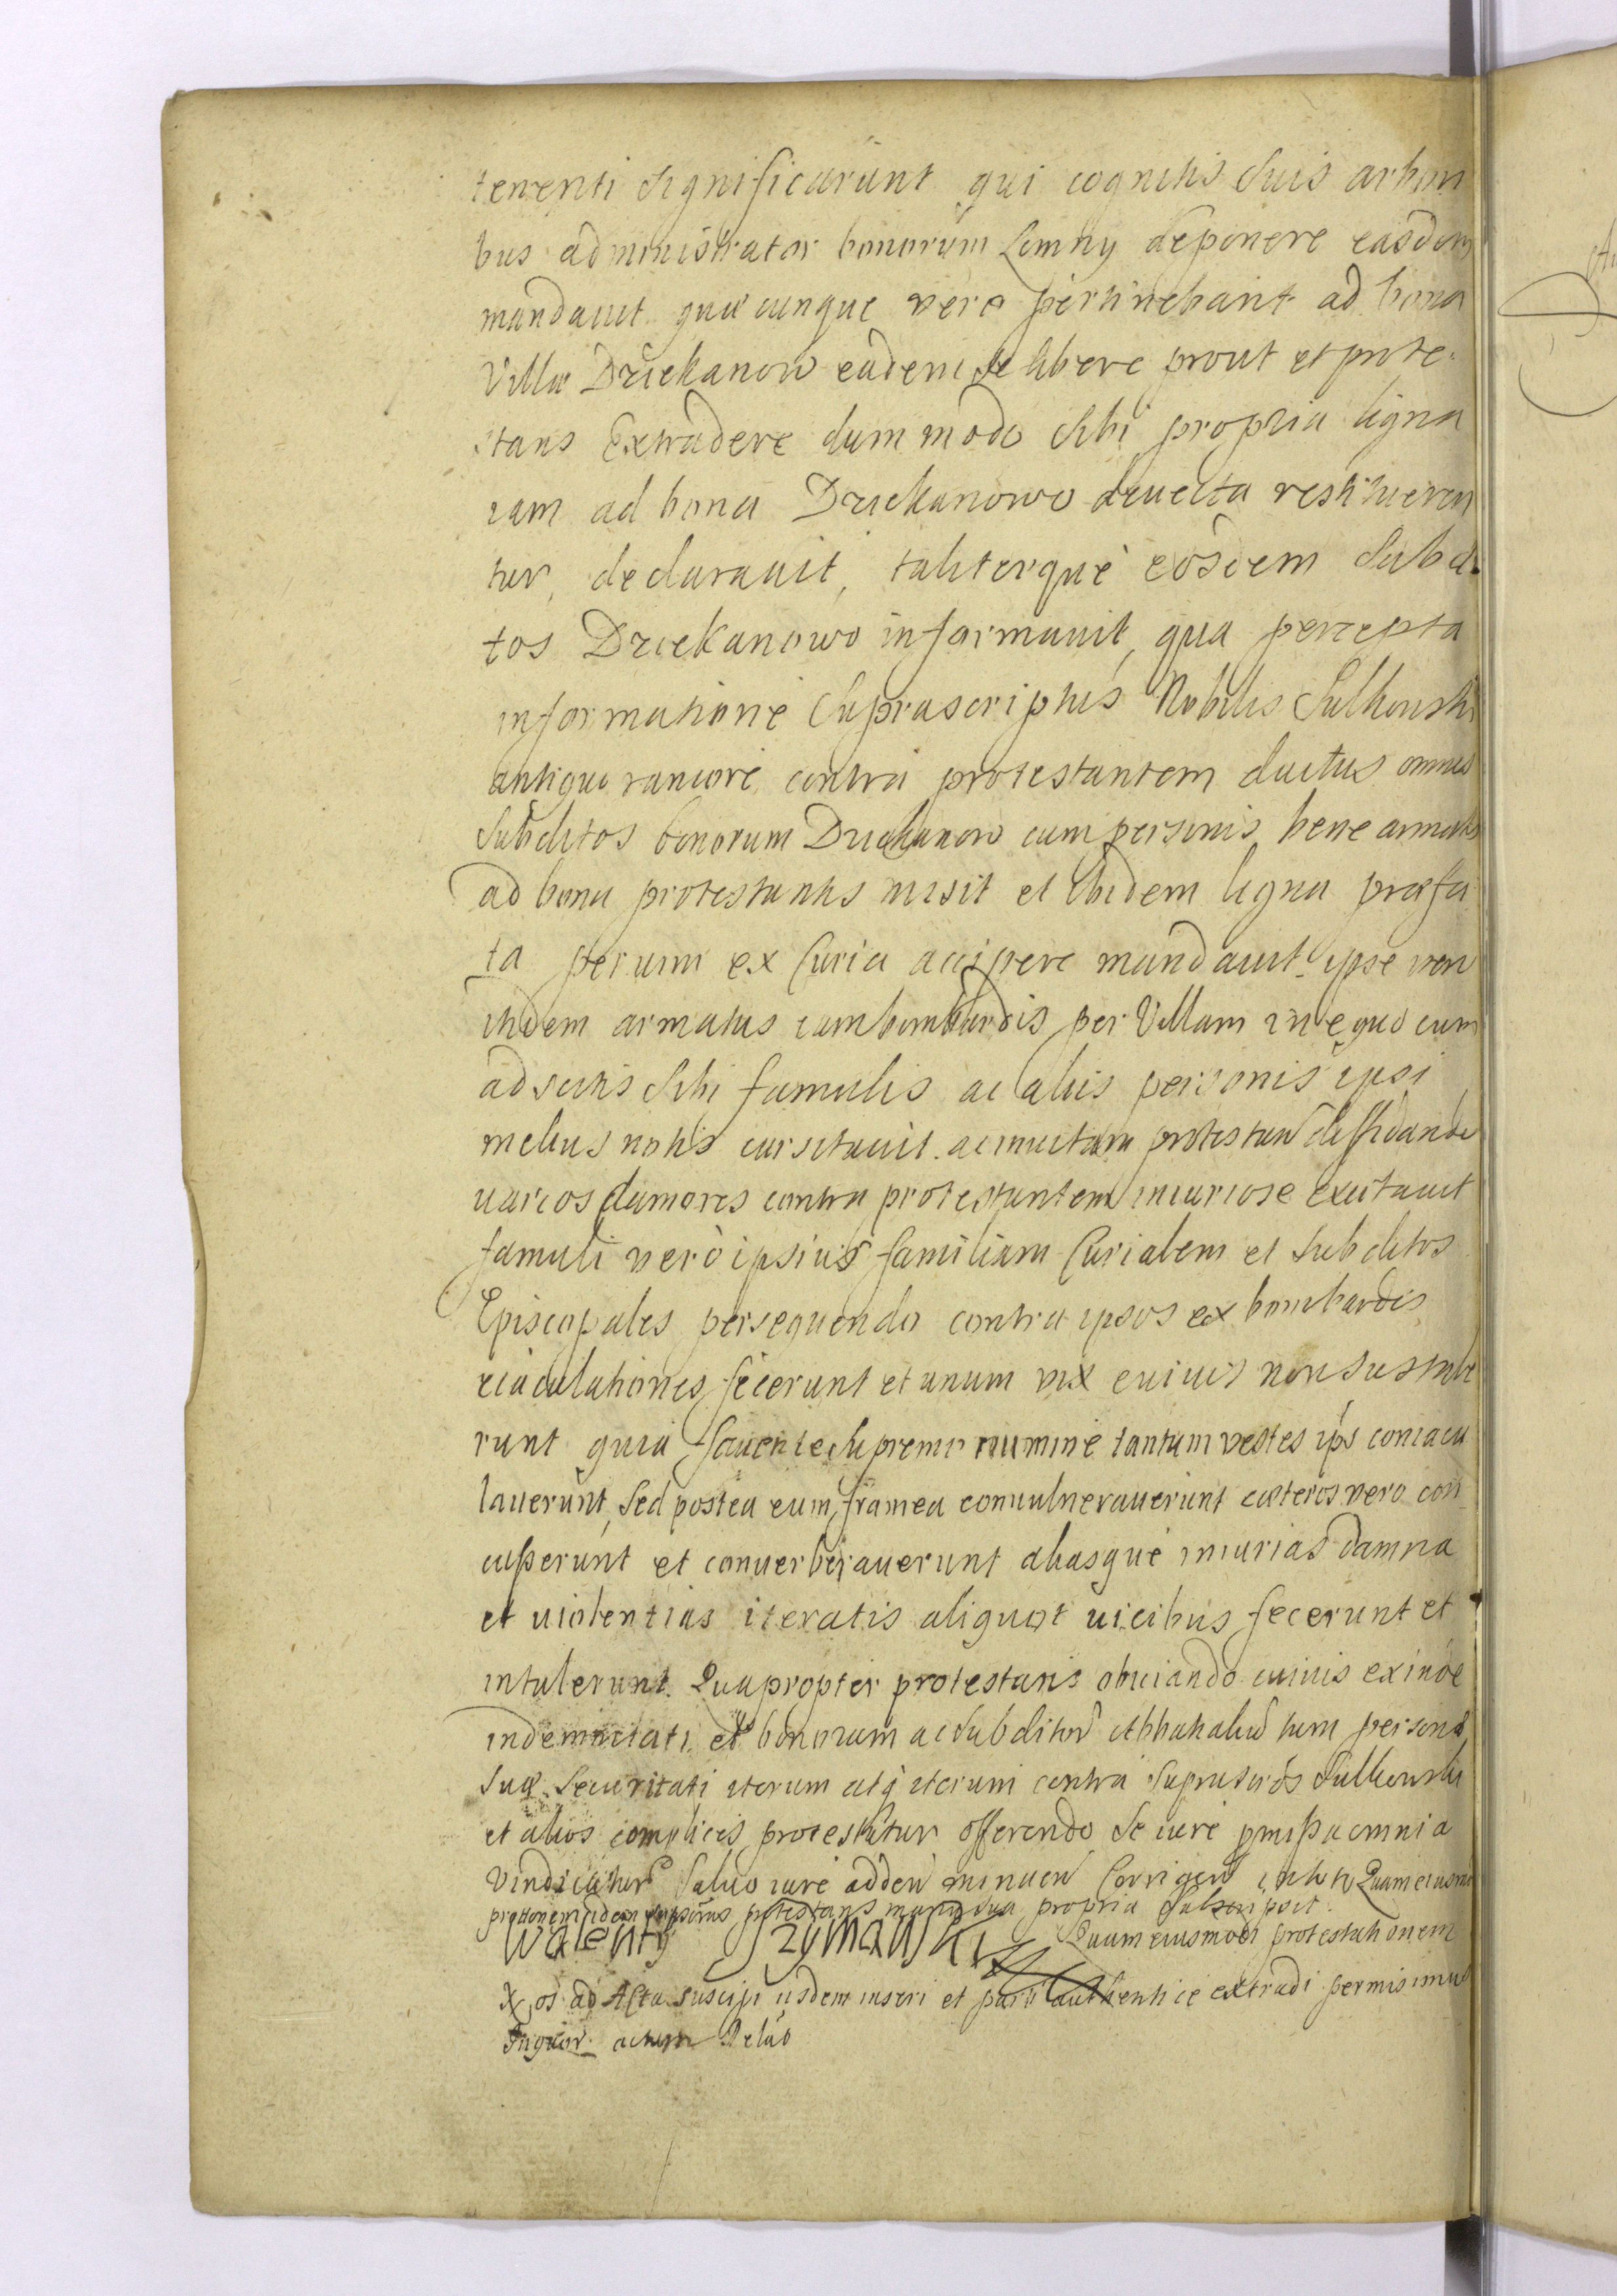 tenenti significarunt qui cognitis suis artion
bus administrator bonorum Lomny deponere easdem
mandauit quæcunque vero pertinebant ad bona
Villæ Dziekanow eadem se libere prout et prote-
stans Extradere dummodo sibi propria ligna
iam ad bona Dziekanowo deuecta restitueren
tur, declarauit, taliterque eosdem subdi
tos Dziekanowo informauit, qua percepta
informatione suprascriptus Nobilis Sulkouski
antiquo rancore contra protestantem ductus omnes
subditos bonorum Dziekanow cum personis bene armatis
ad bona protestantis misit et ibidem ligna præfa
ta per uim ex Curia accipere mandauit ipse vero
itidem armatus cum bombardis per Villam in equo cum
adscitis sibi famulis ac aliis personis ipsi
melius notis cursitauit. ac inuitam protestan diffidando
uarios clamores contra protestantem iniuriose excitauit
famuli vero ipsius familiam Curialem et subditos
Episcopales persequendo contra ipsos ex bombardis
eiaculationes fecerunt et unum vix e uiuis non sustule
runt quia fauente supremo numine tantum vestes ips coniacu
lauerunt, sed postea eum framea conuulnerauerunt cæteros vero con
cusserunt et conuerberauerunt aliasque iniurias damna
et uiolentias iteratis aliquot uicibus fecerunt et
intulerunt. Quapropter protestans obuiando cuiuis exinde
indemnitati et bonorum ac subditor Abbatialiu tum personæ
suæ securitati iterum atq iterum contra suprascros Sulkouski
et alios complices protestatur offerendo se iure pmissa omnia
vindicatur Saluo iure adden minuen Corrigen Quam eiusmo
prottonem idem protestans manu sua propria subscripsit.
Walenty Szymanski Quam eiusmodi protestationem
os ad Acta suscipi iisdem inseri et authentice extradi permisimus
actum